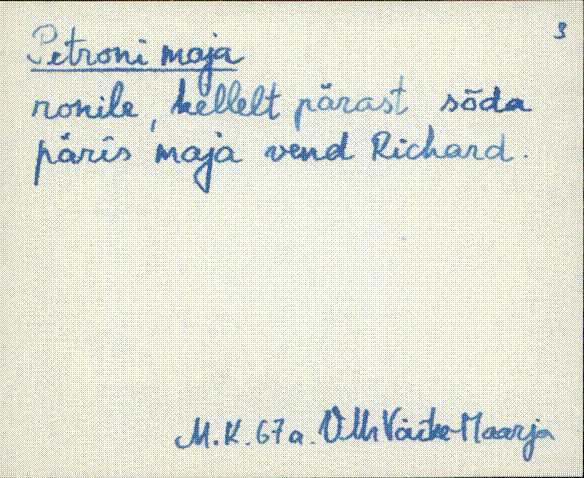 3
Petroni maja
ronile, kellelt pärast sõda
päris maja vend Richard.
M.K. 67a. Väike-Maarja